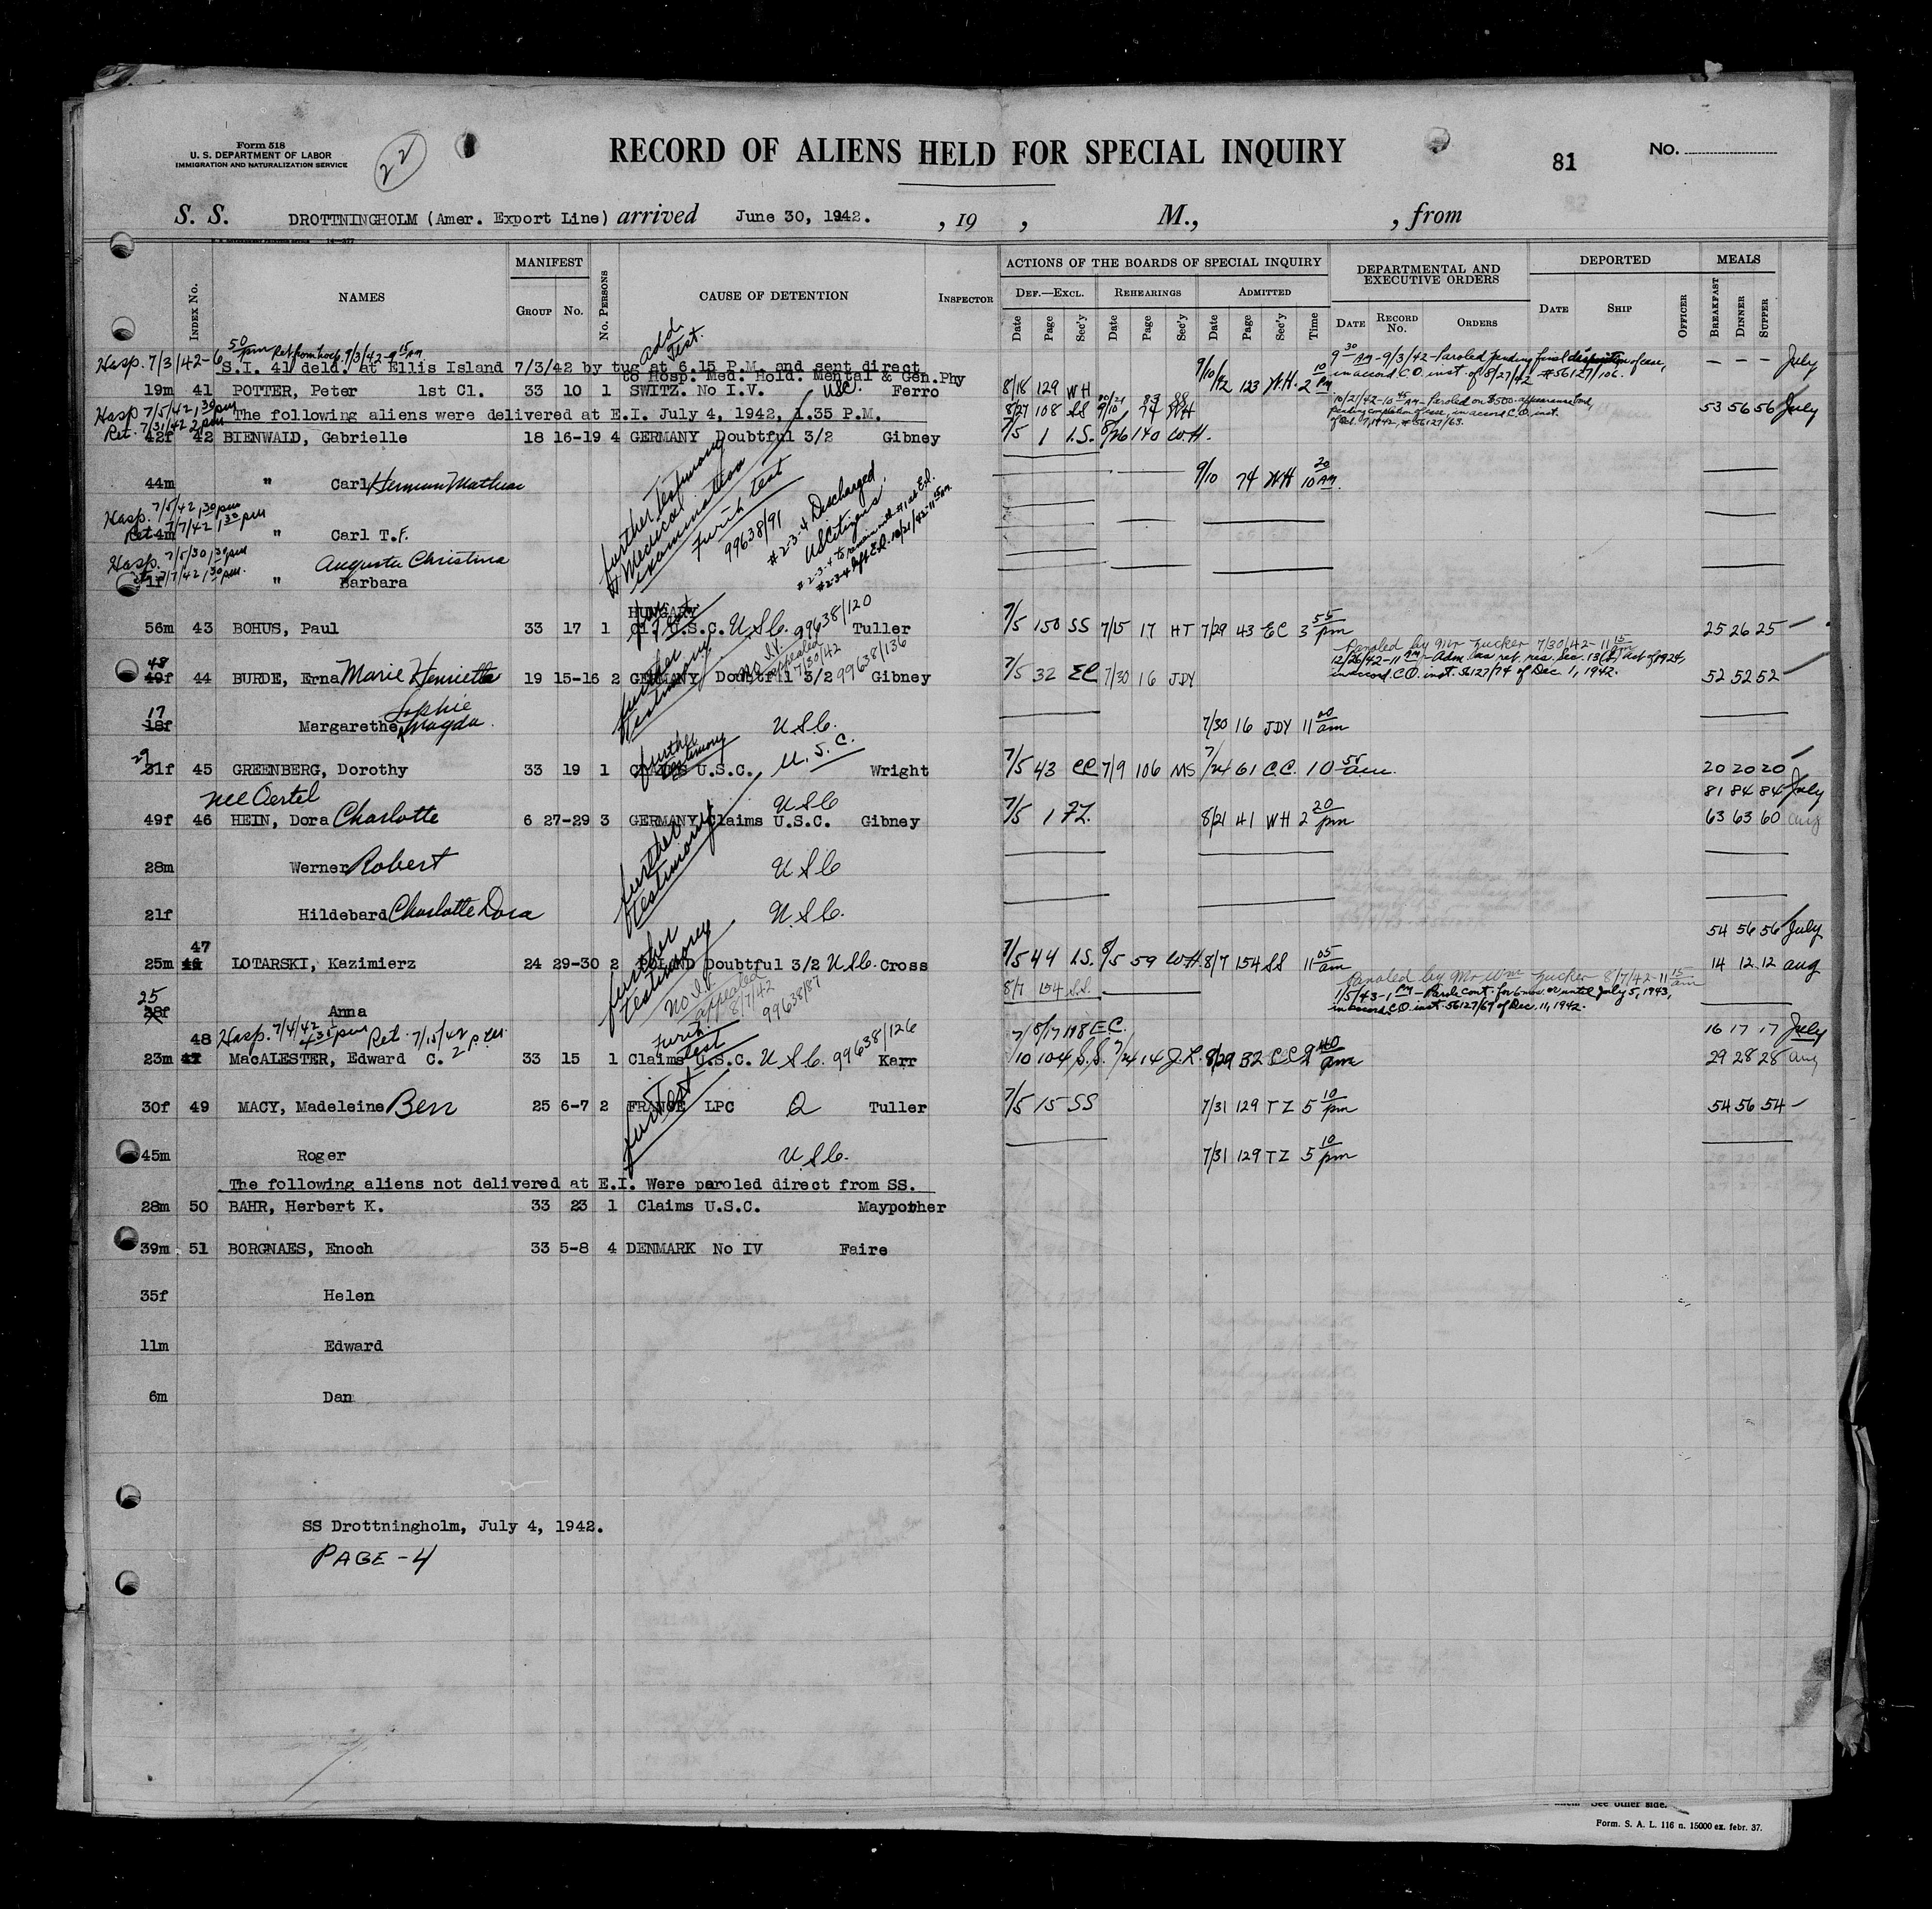 Form 518
U. S. DEPARTMENT OF LABOR
IMMIGRATION AND NATURALIZATION SERVICE
22
RECORD OF ALIENS HELD FOR SPECIAL INQUIRY
81
No.
S. S. DROTTNINGHOLM (Amer. Export Line) arrived June 30, 1942. , 19 , M., , from
INDEX No. NAMES MANIFEST GROUP No. No. PERSONS CAUSE OF DETENTION INSPECTOR
ACTIONS OF THE BOARDS OF SPECIAL INQUIRY
DEF.—EXCL. REHEARINGS ADMITTED
Date Page Sec'y Date Page Sec'y Date Page Sec'y Time
DEPARTMENTAL AND EXECUTIVE ORDERS
DATE RECORD No. ORDERS
DEPORTED
DATE SHIP OFFICER
MEALS
BREAKFAST DINNER SUPPER
Hosp. 7/3/42-6 50 pm Ret from hosp. 9/3/42-9 15 AM
add. Test.
S.I. 41 deld. at Ellis Island 7/3/42 by tug at 6.15 P.M. and sent direct
to Hosp. Med. Hold. Mental & Gen. Phy
9 30 AM - 9/3/42 - Paroled pending final disposition of case,
in accord. C.O. inst. of 8/27/42 #56127/106.
— — — July
19m 41 POTTER, Peter 1st Cl. 33 10 1 SWITZ. No I.V. USC. Ferro 8/18 129 WH 9/10/42 123 W.H. 2 10 pm
Hosp 7/5/42, 1 30 pm
Ret. 7/31/42 2 pm
The following aliens were delivered at E.I. July 4, 1942, 1.35 P.M.
8/27 108 SS 9/10 74 WH
10/21/42-10 45 AM - Paroled on $500. appearance bond,
pending completion of case, in accord C.O. inst.
53 56 56 July
42f 42 BIENWALD, Gabrielle 18 16-19 4 GERMANY Doubtful 3/2 Gibney 7/5 1 I.S. 8/26 140 W.H.
further testimony
& Medical examination
Furth test
99638/91
#2-3-4 Discharged
US Citizens.
#2-3-4 to remain with #1 at E.I.
#2-3-4 left E.I. 10/21/42-11 15 AM
44m " Carl Herman Mathew 9/10 74 WH 10 20 AM.
Hosp. 7/5/42, 1 30 pm
Ret 7/7/42 1 30 pm
4m " Carl T.F.
Hosp. 7/5/30 1 30 pm
7/7/42 1 30 pm.
Augusta Christina
1f " Barbara
56m 43 BOHUS, Paul 33 17 1 HUNGARY Cl. U.S.C. U.S.C. 99638/120 Tuller 7/5 150 SS 7/15 17 HT 7/29 43 EC 3 55 pm 25 26 25 —
further testimony
No I.V. appealed 7/30/42 99638/136
Paroled by Mr Zucker 7/30/42-11 15 am
12/26/42-11 AM - Adm. as ret. res. Sec. 13(b) Act of 1924,
in accord. C.O. inst. 56127/74 of Dec. 1, 1942.
48
49f 44 BURDE, Erna Marie Henrietta 19 15-16 2 GERMANY Doubtful 3/2 Gibney 7/5 32 EC 7/30 16 JDY 52 52 52 —
17
18f Margarethe, Sophie Magda. U.S.C. 7/30 16 JDY 11 00 am
29
31f 45 GREENBERG, Dorothy 33 19 1 CLAIMS U.S.C. U.S.C. Wright 7/5 43 EC 7/9 106 MS 7/24 61 C.C. 10 55 am. 20 20 20 —
further testimony
nee Oertel
81 84 84 July
49f 46 HEIN, Dora Charlotte 6 27-29 3 GERMANY Claims U.S.C. USC Gibney 7/5 1 FZ. 8/21 41 WH 2 20 pm 63 63 60 aug
further testimony
28m Werner Robert USC
21f Hildebard Charlotte Dora U.S.C.
54 56 56 July
47
25m 46 LOTARSKI, Kazimierz 24 29-30 2 POLAND Doubtful 3/2 USC. Cross 7/5 44 I.S. 8/5 59 W.H. 8/7 154 SS 11 05 am 14 12 12 aug
further testimony
No I.V. appealed 8/7/42 99638/87
Paroled by Mr Wm Zucker 8/7/42-11 15 am
1/5/43-1 PM - Parole cont. for 6 mos. or until July 5, 1943,
in accord C.O. inst. 56127/69 of Dec. 11, 1942.
25
28f Anna 8/7 154 S.S.
48 Hosp. 7/4/42 4 35 pm Ret. 7/15/42 2 p.m.
16 17 17 July
23m 47 MacALESTER, Edward C. 33 15 1 Claims U.S.C. USC. 99638/126 Karr 7/10 104 S.S. 7/24 14 J.L. 8/29 32 C.C. 9 40 am 29 28 28 aug
Furth. Test
30f 49 MACY, Madeleine Ben 25 6-7 2 FRANCE LPC Q Tuller 7/5 15 SS 7/31 129 TZ 5 10 pm 54 56 54 —
fur Test
45m Roger U.S.C. 7/31 129 TZ 5 10 pm
The following aliens not delivered at E.I. Were paroled direct from SS.
28m 50 BAHR, Herbert K. 33 23 1 Claims U.S.C. Maypother
39m 51 BORGNAES, Enoch 33 5-8 4 DENMARK No IV Faire
35f Helen
11m Edward
6m Dan
SS Drottningholm, July 4, 1942.
PAGE-4
See other side.
Form. S. A. L. 116 n. 15000 ex. febr. 37.